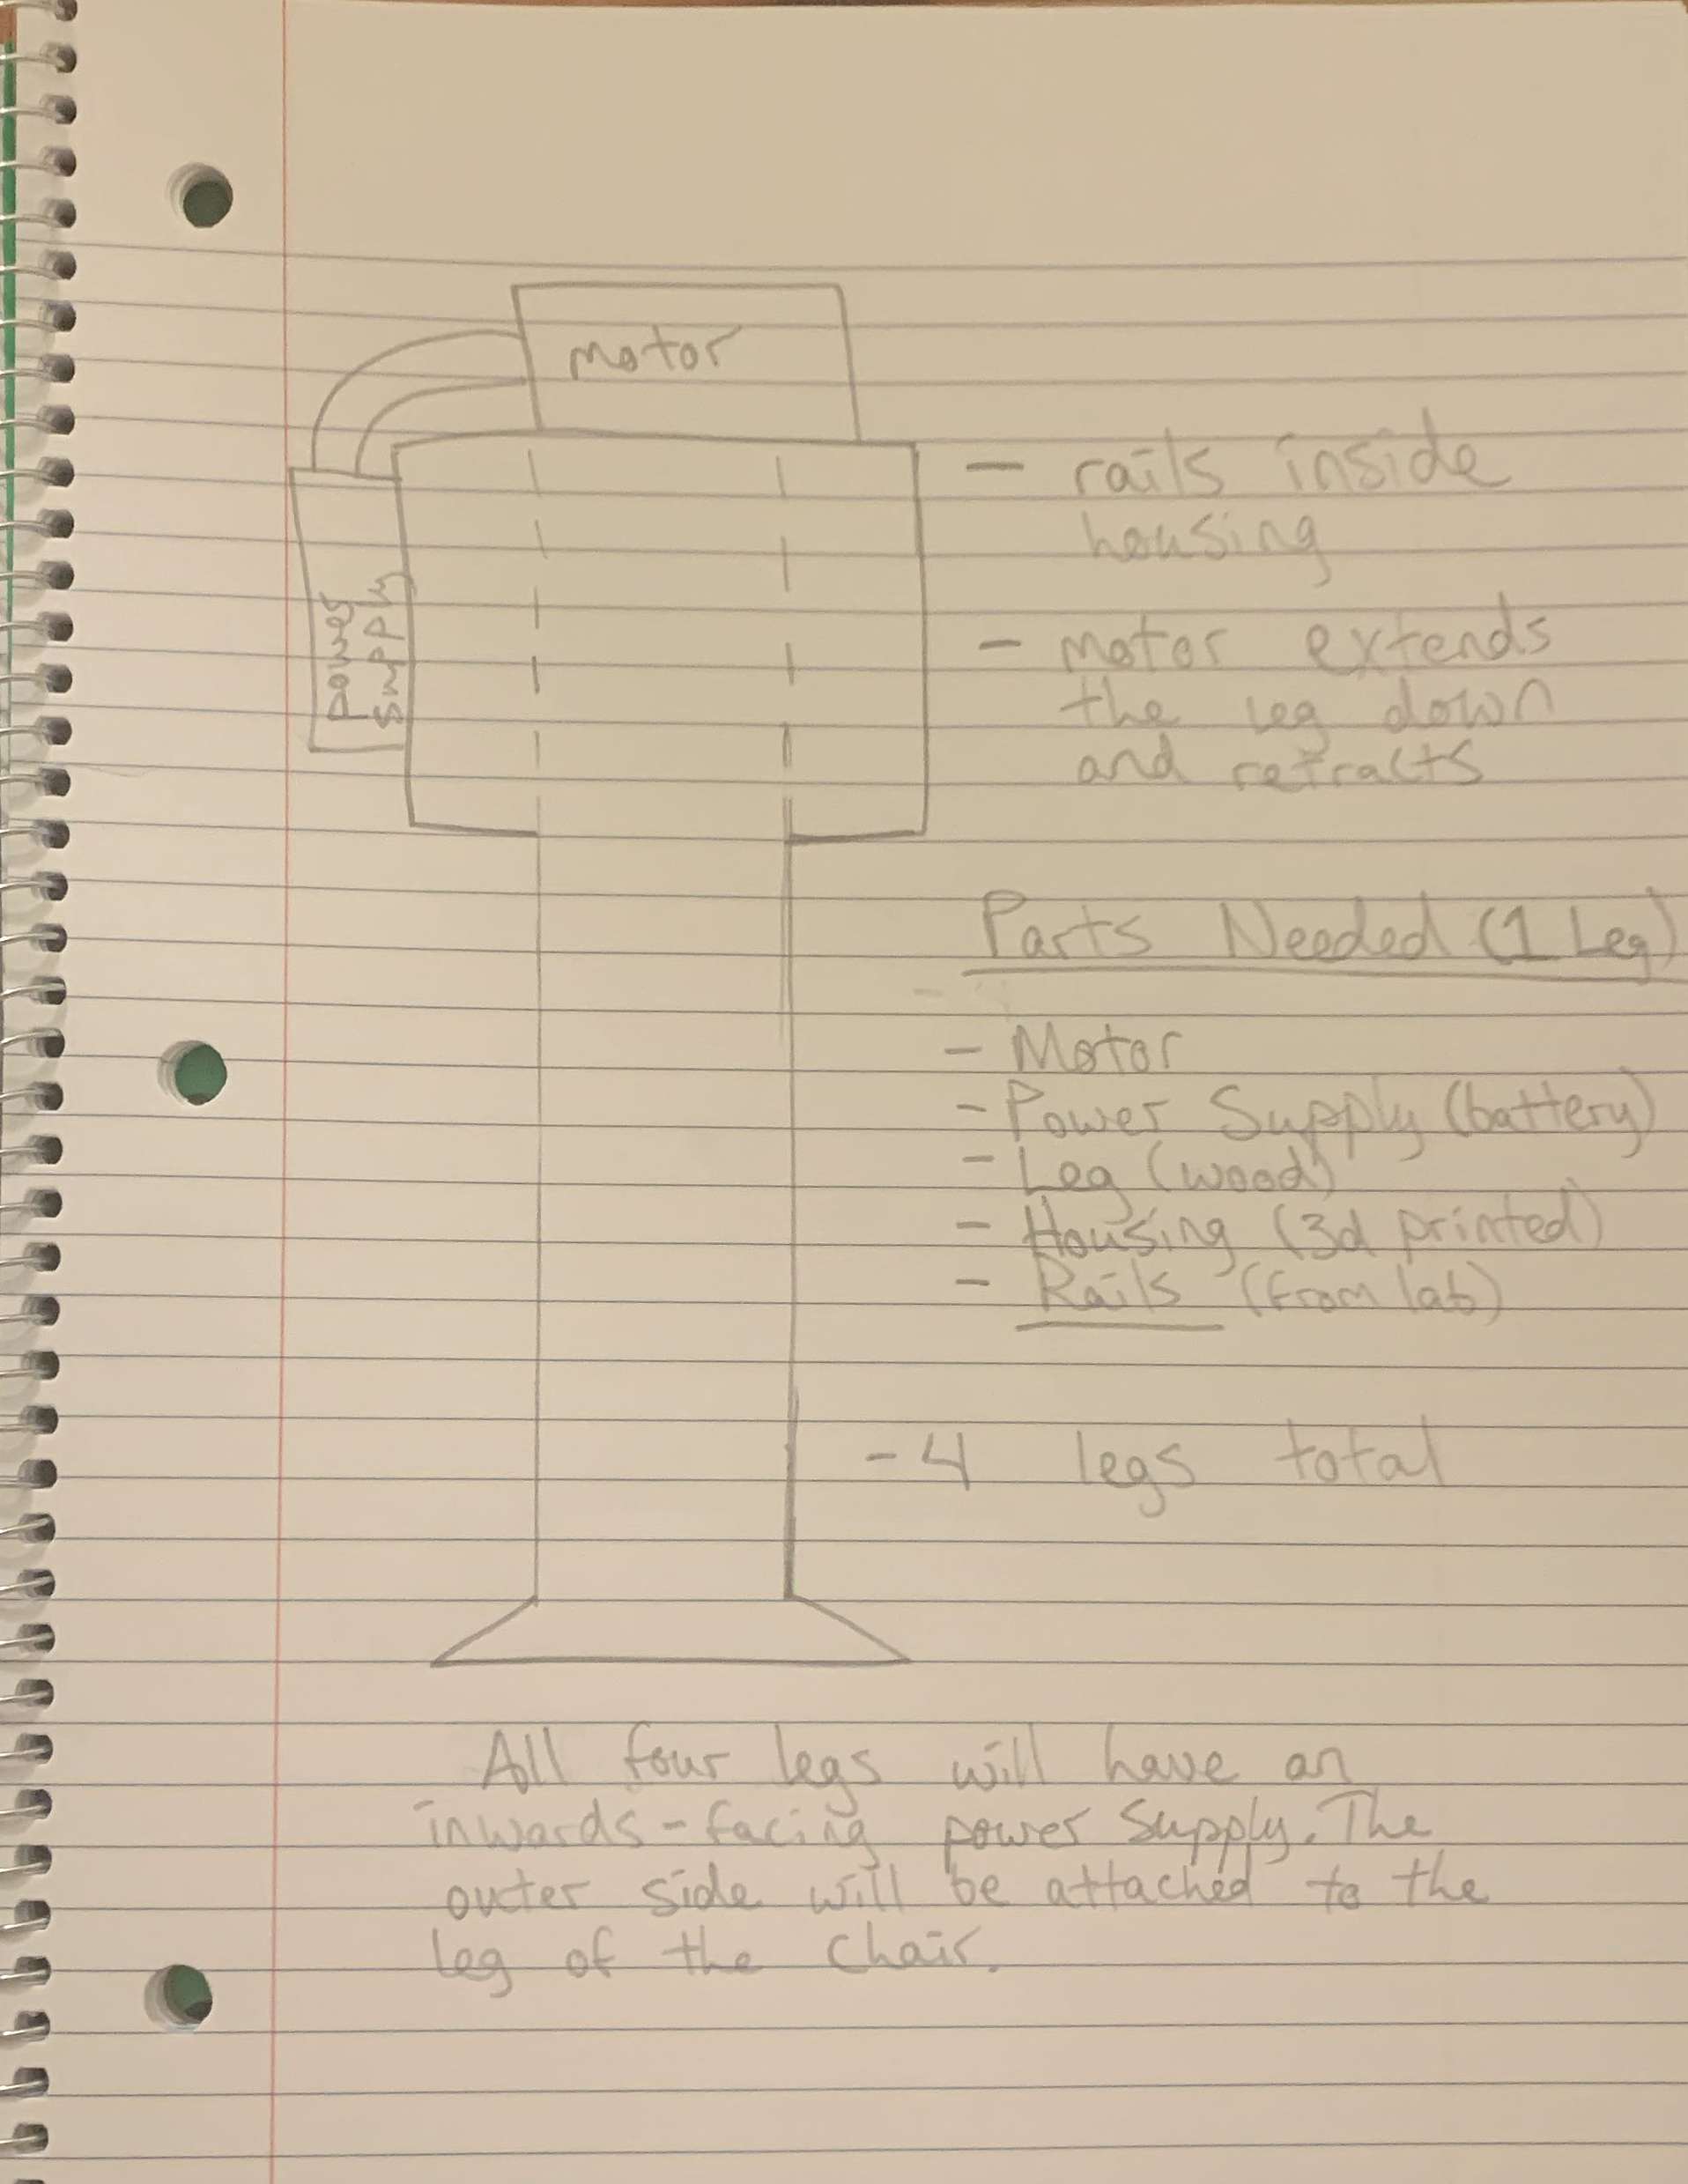 motor
power
supply
- rails inside
housing
- motor extends
the leg down
and retracts
Parts Needed (1 Leg)
- Motor
- Power Supply (battery)
- Leg (wood)
- Housing (3d printed)
- Rails (from lab)
- 4 legs total
All four legs will have an
inwards-facing power supply. The
outer side will be attached to the
leg of the chair.